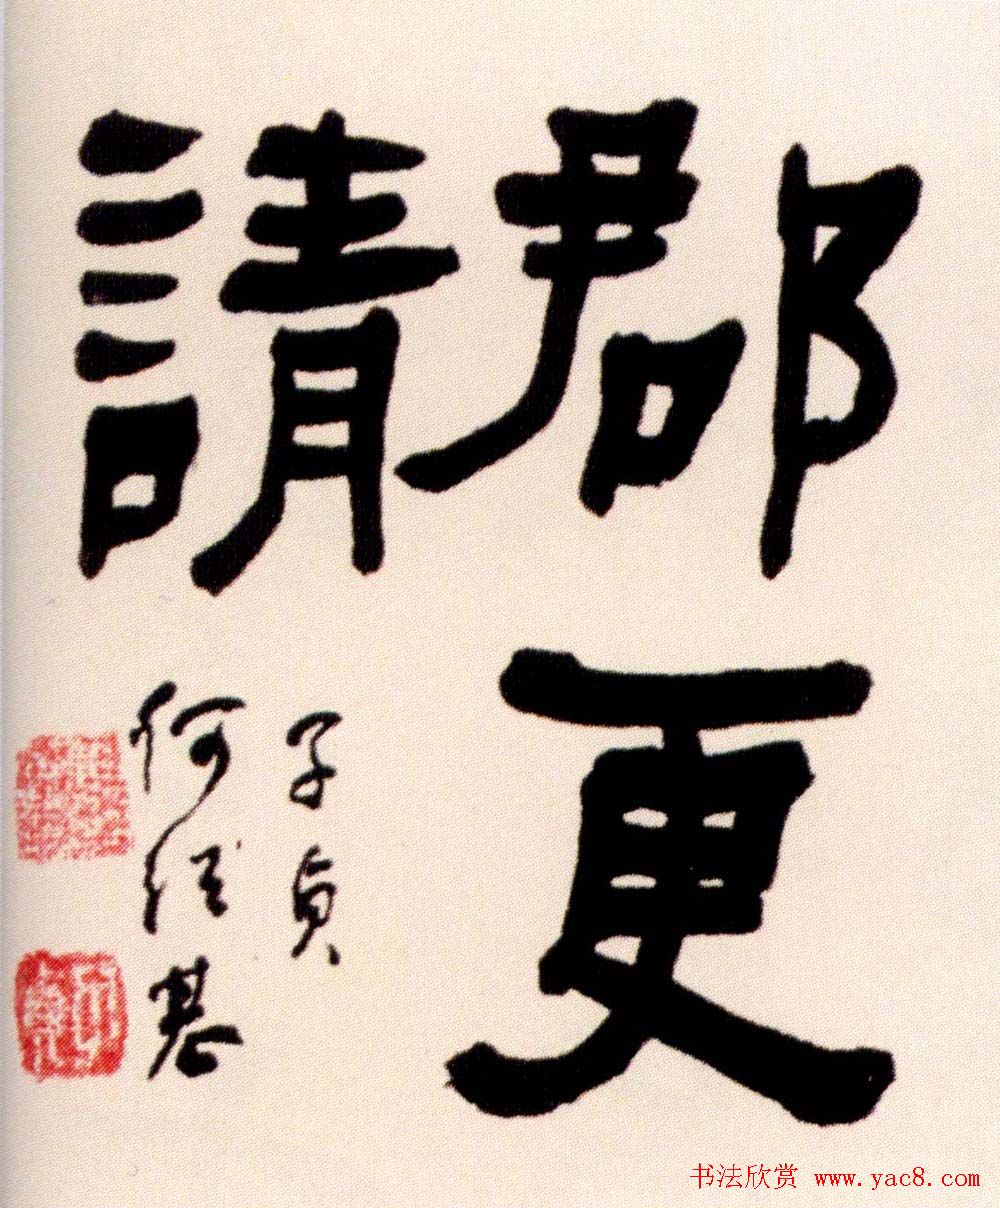 郡更
請
子貞
何紹基
书法欣赏 www.yac8.com